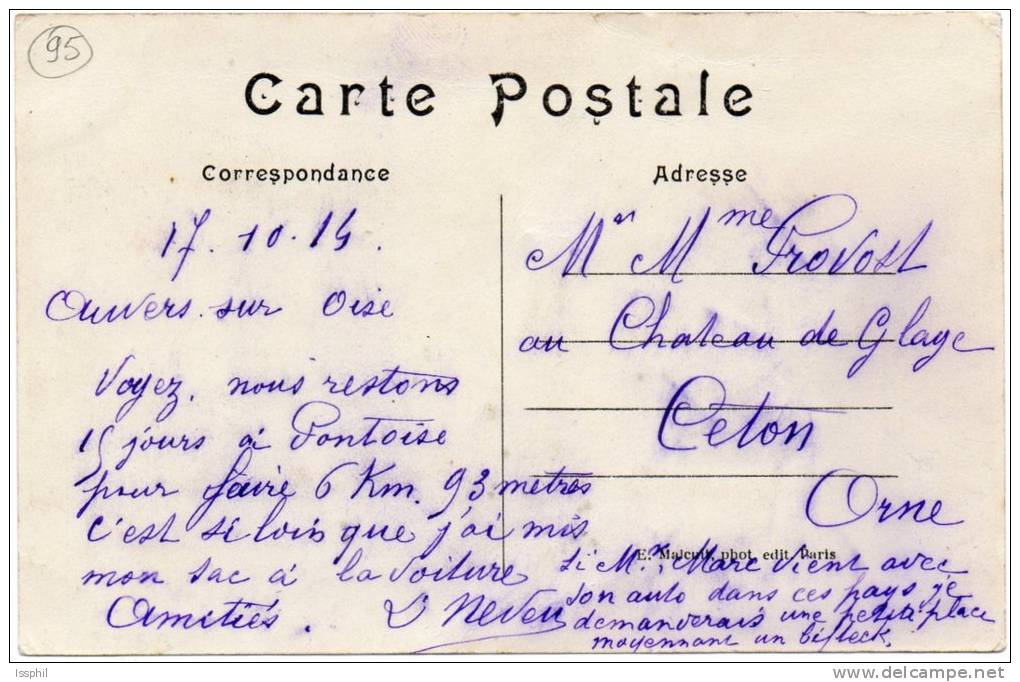 95
Carte Postale
Correspondance
17.10.14.
Auvers. sur Oise
Voyez, nous restons
15 jours à Pontoise
pour faire 6 Km. 93 metres
c'est si loin que j'ai mis
mon sac à la voiture
Amitiés. L Neveu
Adresse
Mr Mme Provost
au Chateau de Glaye
Ceton
Orne
E. Malcuit, phot. edit. Paris
si Mr. Marc vient avec
son auto dans ces pays, je
demanderais une petite place
moyennant un bifteck.
Issphil
delcampe.net